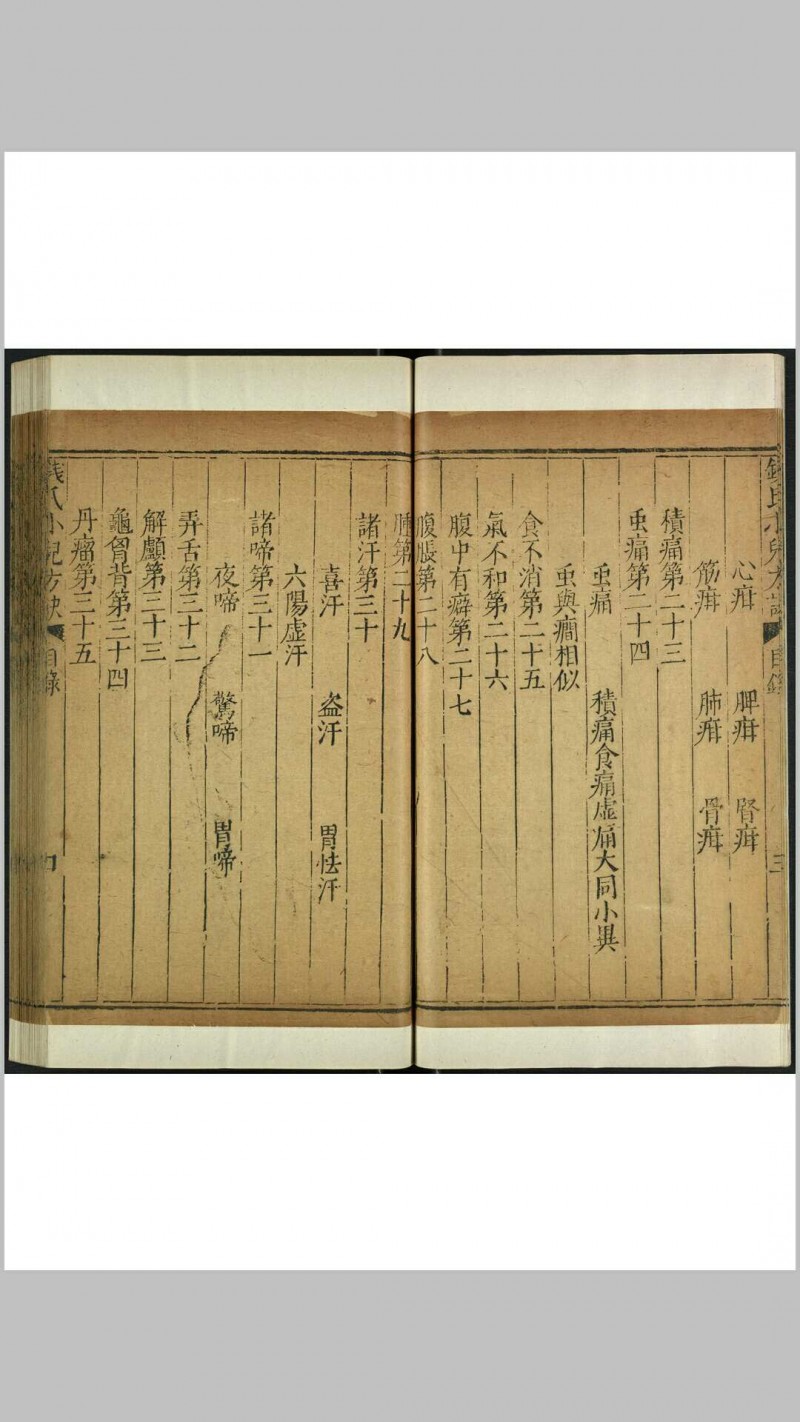 錢氏小兒方訣 目錄 三
心疳 脾疳 腎疳
筋疳 肺疳 骨疳
積痛第二十三
虫痛第二十四
虫痛 積痛食痛虛痛大同小異
虫與癎相似
食不消第二十五
氣不和第二十六
腹中有癖第二十七
腹脹第二十八
腫第二十九
諸汗第三十
喜汗 盗汗 胃怯汗
六陽虛汗
諸啼第三十一
夜啼 驚啼 胃啼
弄舌第三十二
解顱第三十三
龜胷背第三十四
丹瘤第三十五
錢氏小兒方訣 目錄